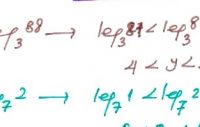 log₃88 → log₃81 < log₃8
4 < y <
log₇2 → log₇1 < log₇2